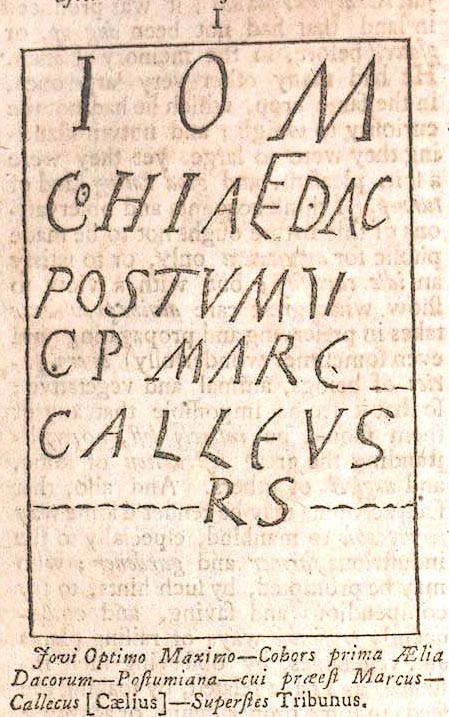 I
I O M
COH I AEDAC
POSTVMVI
C P MARC
CALLEVS
RS
Jovi Optimo Maximo—Cohors prima Ælia
Dacorum—Postumiana—cui præest Marcus—
Callecus [Cælius]—Superstes Tribunus.